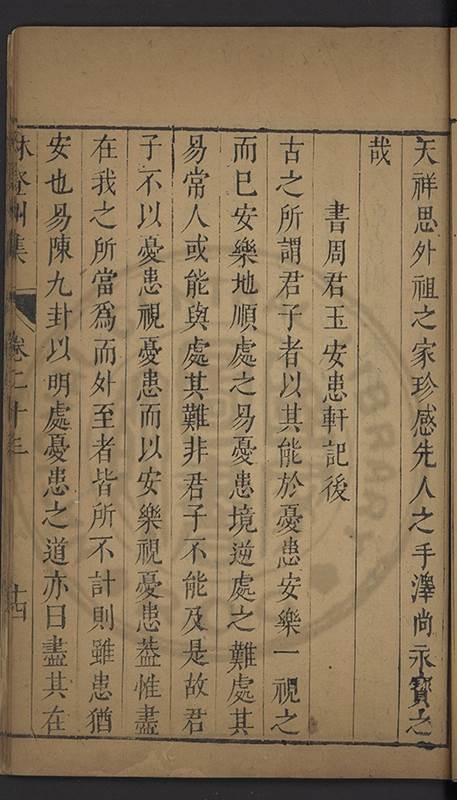 天祥思外祖之家珍感先人之手澤尚永寳之
哉
書周君玉安患軒記後
古之所謂君子者以其能於憂患安樂一視之
而巳安樂地順處之易憂患境逆處之難處其
易常人或能與處其難非君子不能及是故君
子不以憂患視憂患而以安樂視憂患葢惟盡
在我之所當爲而外至者皆所不計則雖患猶
安也易陳九卦以明處憂患之道亦曰盡其在
林登州集 卷二十三 十四